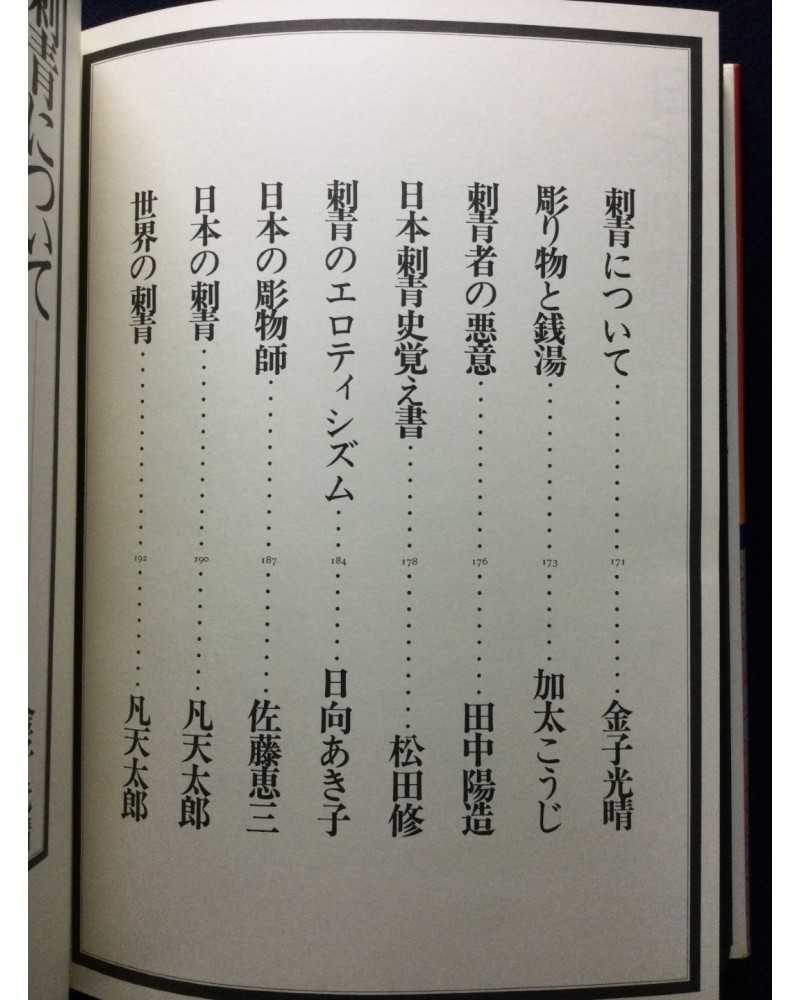 刺青について・・・・・・・・・・・171・・・・・・・・金子光晴
彫り物と銭湯・・・・・・・・・・・173・・・・・・加太こうじ
刺青者の悪意・・・・・・・・・・・176・・・・・・・・田中陽造
日本刺青史覚え書・・・・・・・178・・・・・・・・・・松田修
刺青のエロティシズム・・・184・・・・・・日向あき子
日本の彫物師・・・・・・・・・・・187・・・・・・・・佐藤恵三
日本の刺青・・・・・・・・・・・・・190・・・・・・・・凡天太郎
世界の刺青・・・・・・・・・・・・・192・・・・・・・・凡天太郎
刺青について